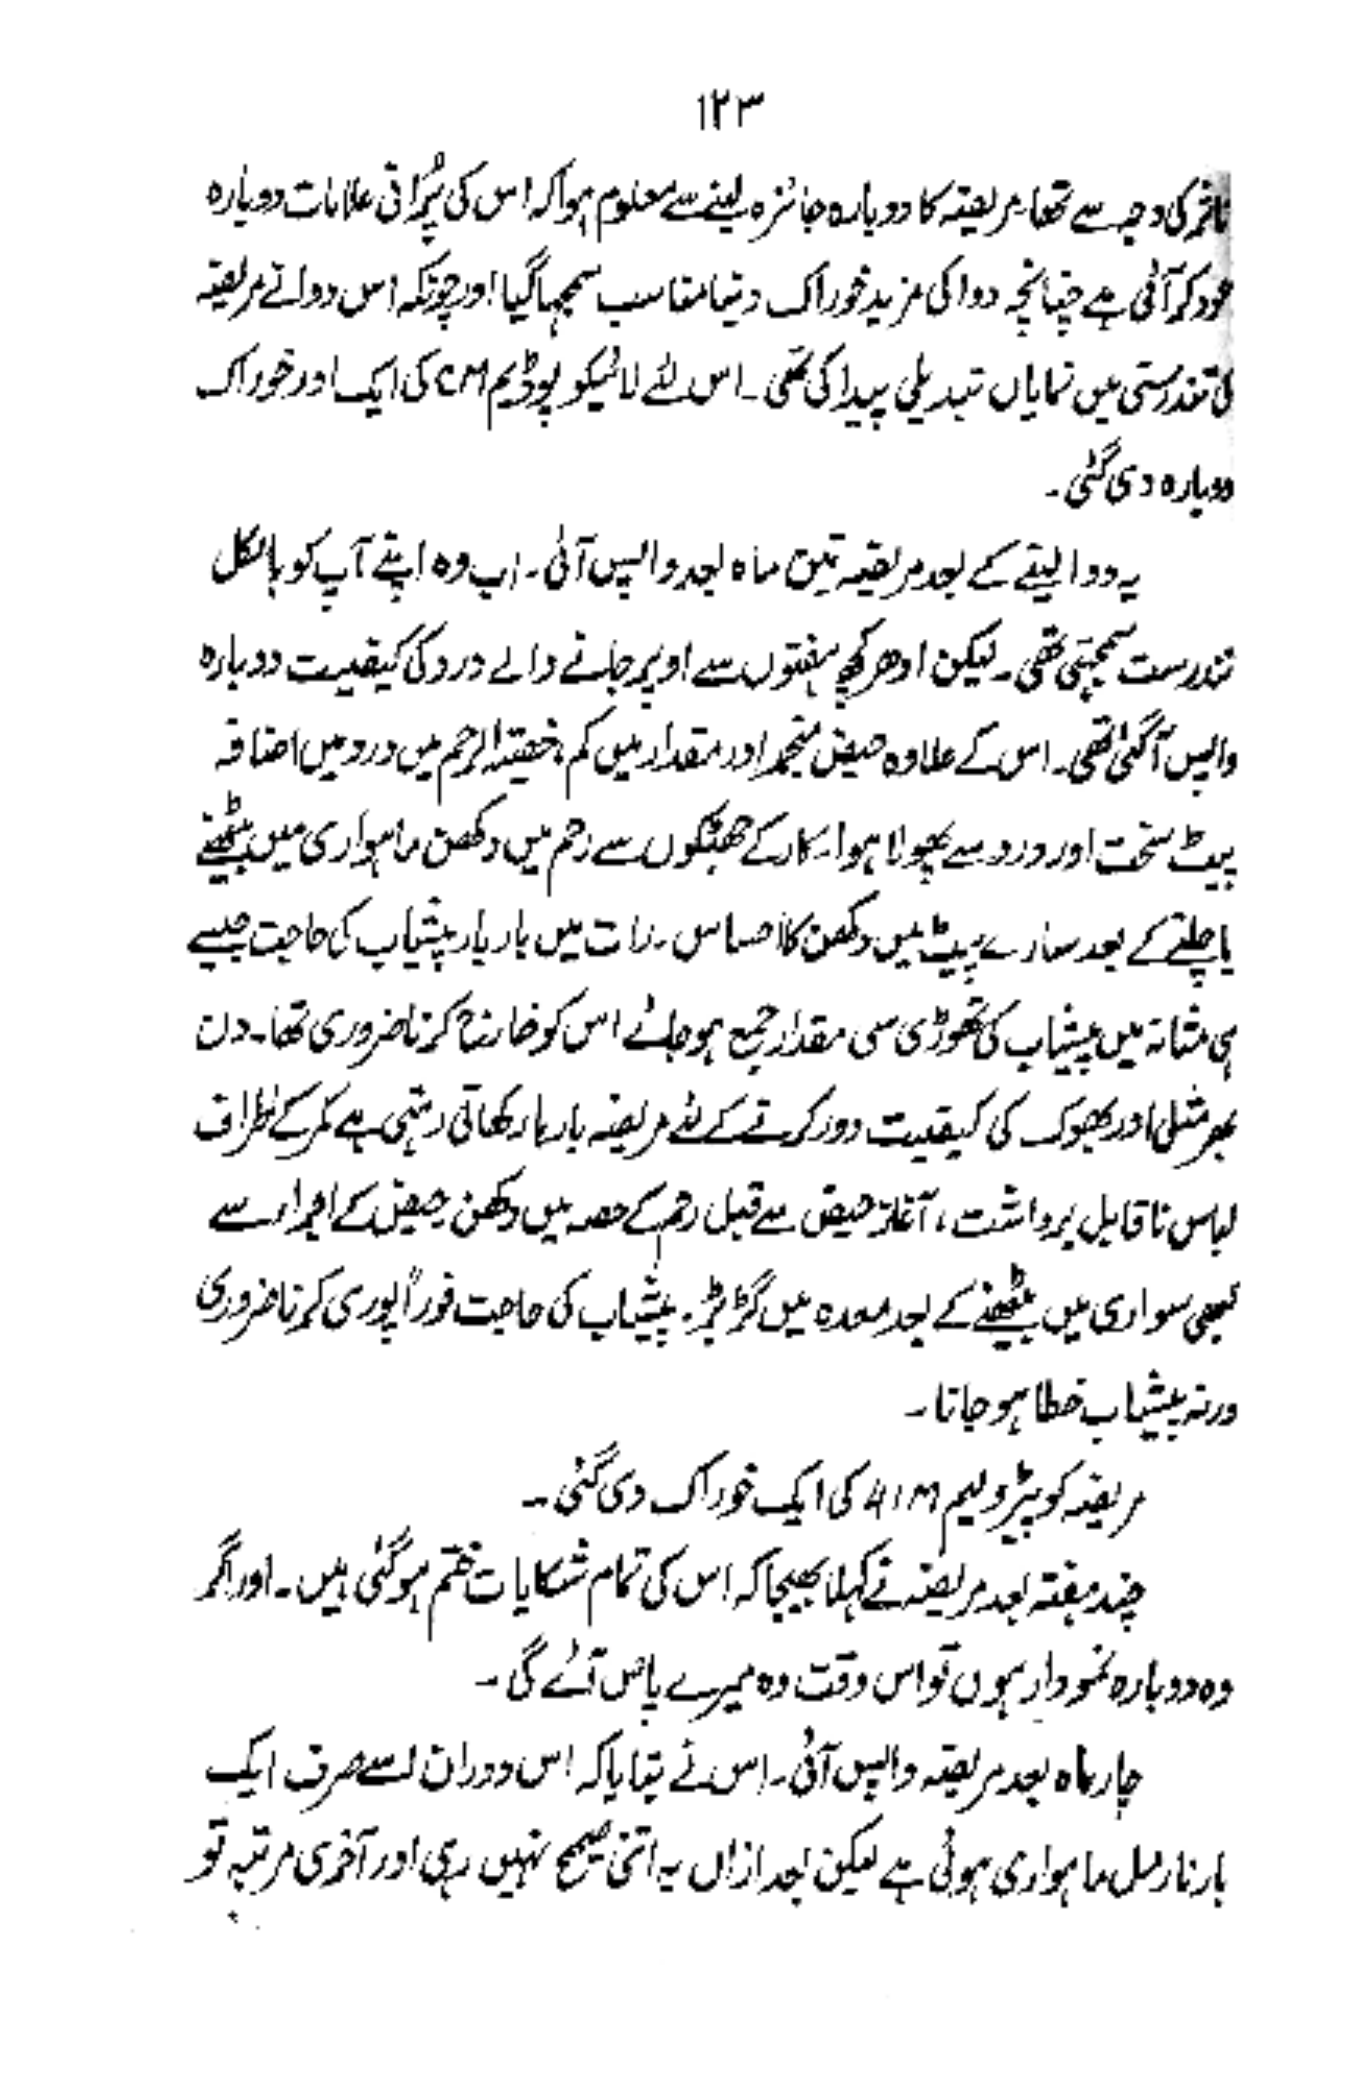 ۱۲۳
کی وجہ سے تھا۔ مریضہ کا دوبارہ جائزہ لینے سے معلوم ہوا کہ اس کی پُرانی علامات دوبارہ
عود کر آئی ہے چنانچہ دوا کی مزید خوراک دینا مناسب سمجہا گیا اور چونکہ اس دوا نے مریضہ
کی تندرستی میں نمایاں تبدیلی پیدا کی تھی۔ اس لئے لائیکوپوڈیم CM کی ایک اور خوراک
دوبارہ دی گئی۔
یہ دوا لینے کے بعد مریضہ تین ماہ بعد واپس آئی۔ اب وہ اپنے آپ کو بالکل
تندرست سمجہتی تھی۔ لیکن ادھر کچھ ہفتوں سے اوپر جانے والے درد کی کیفیت دوبارہ
واپس آگئی تھی۔ اس کے علاوہ حیض منجمد اور مقدار میں کم، خصیتہ الرحم میں درد میں اضافہ
پیٹ سخت اور درد سے پھولا ہوا۔ کار کے جھٹکوں سے رحم میں دکھن ماہواری میں بیٹھنے
یا چلنے کے بعد سارے پیٹ میں دکھن کا احساس۔ رات میں بار بار پیشاب کی حاجت جیسے
ہی مثانہ میں پیشاب کی تھوڑی سی مقدار جمع ہو جائے اس کو خارج کرنا ضروری تھا۔ دن
بھر متلی اور بھوک کی کیفیت دور کرنے کے لئے مریضہ بار بار کھاتی رہتی ہے کمر کے اطراف
لباس ناقابل برداشت، آغاز حیض سے قبل رحم کے حصہ میں دکھن حیض کے اجراء سے
کبھی سواری میں بیٹھنے کے بعد معدہ میں گڑبڑ۔ پیشاب کی حاجت فوراً پوری کرنا ضروری
ورنہ پیشاب خطا ہو جاتا۔
مریضہ کو پیٹرولیم کی ایک خوراک دی گئی۔
چند ہفتہ بعد مریضہ نے کہلا بھیجا کہ اس کی تمام شکایات ختم ہو گئی ہیں۔ اور اگر
وہ دوبارہ نمودار ہوں تو اس وقت وہ میرے پاس آئے گی۔
چار ماہ بعد مریضہ واپس آئی۔ اس نے بتایا کہ اس دوران اسے صرف ایک
بار نارمل ماہواری ہوئی ہے لیکن بعد ازاں یہ اتنی صحیح نہیں رہی اور آخری مرتبہ تو